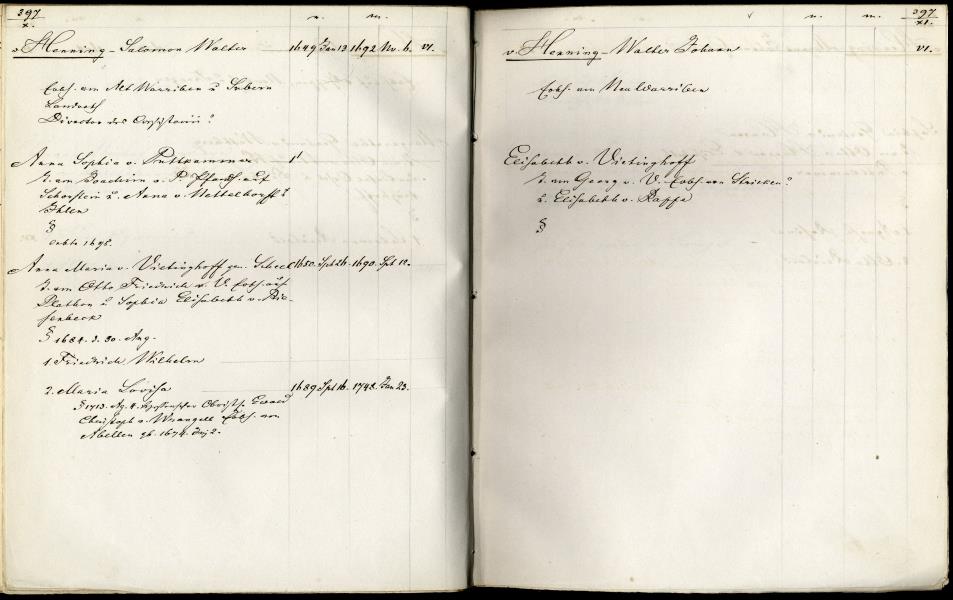 397
X.
n. m.
v Henning - Salomon Walter 1649 Jan 13 1692 Nv. 6. VI.
Erbh. von Alt Warriben u
Landrath
Director des Consistorii?
Anna Sophia v. Puttkammer 1'
T. von Joachim v. P. Pfandh. auf
u. Anna v. Nettelhorst?
Ihlen
§
lebte 1695.
Anna Maria v. Vietinghoff gen. Scheel 1650. Spt 24. 1690. Spt 12.
T. von Otto Friedrich v. V. Erbh. auf
Plathon u Sophia Elisabeth v.
§ 1684. d. 30. Aug.
1. Friedrich Wilhelm
2. Maria Lovisa 1689 Spt 16. 1748. Jan 23.
§ 1713. Ag. 4. Obristl. Ewald
Christoph v. Wrangell Erbh. von
Abellen gb. 1674. 2.
n. m. 397
XI.
v. Henning - Walter Johann VI.
Erbh. von Neu Warriben
Elisabeth v. Vietinghoff
T. von Georg v. V. Erbh. von Stricken?
u. Elisabeth v. Rappe
§